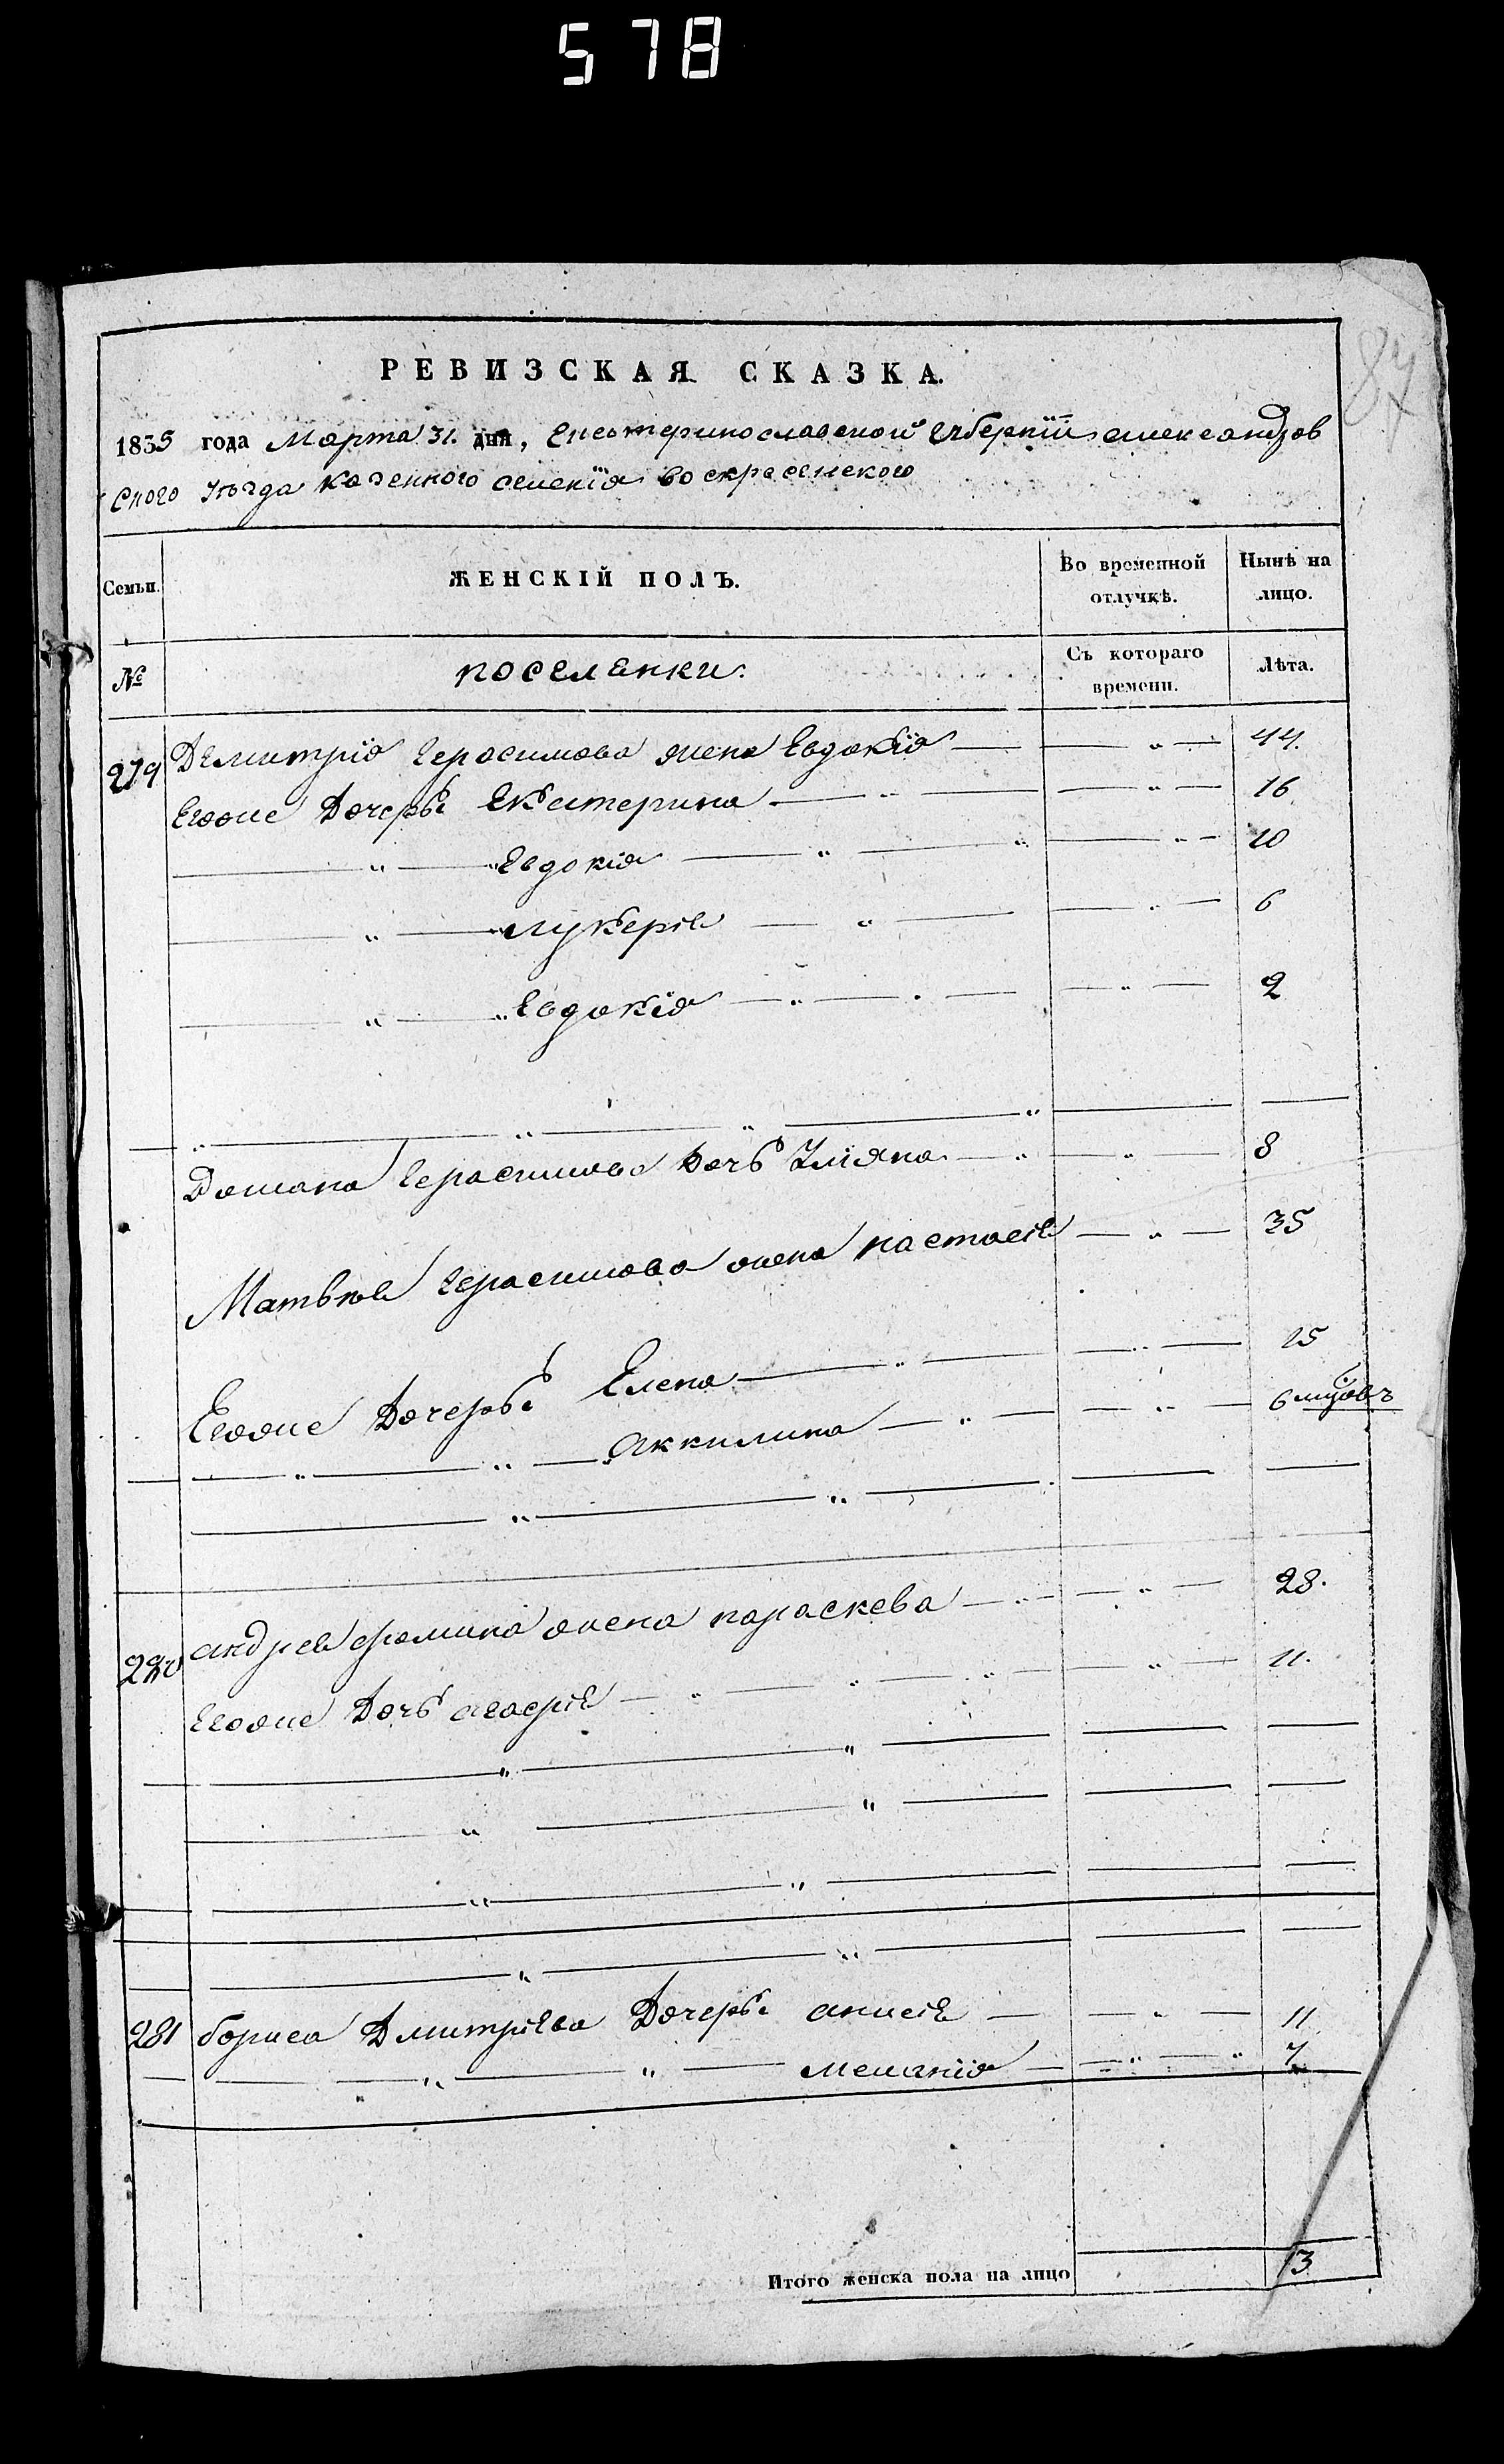 578
87
РЕВИЗСКАЯ СКАЗКА.
1835 года Марта 31. дня, Екатеринославской Губернїи александров
ского уѣзда казенного селенїя воскресенского
Семьи. ЖЕНСКІЙ ПОЛЪ. Во временной отлучкѣ. Нынѣ на лицо.
№ поселянки. Съ котораго времени. Лѣта.
279 Дмитрїя Герасимова жена Евдокїя — " — 44.
Егоже Дочерьи Екатерина — " — 16
" — Евдокїя — " — 10
" — лукерїя — " — 6
" — Евдокїя — " — 2
Домана Герасимова Дочь Улїяна — " — 8
Матвѣя Герасимова жена настасїя — " — 35
Егоже Дочерьи Елена — " — 15
" — " — Аккилина — " — 6 мцовъ
280 андрея фомина жена параскева — " — 28.
Егоже Дочь агафїя — " — 11.
281 бориса Дмитрїева Дочерьи анисїя — " — 11
" — " — меланїя — " — 7
Итого женска пола на лицо 13